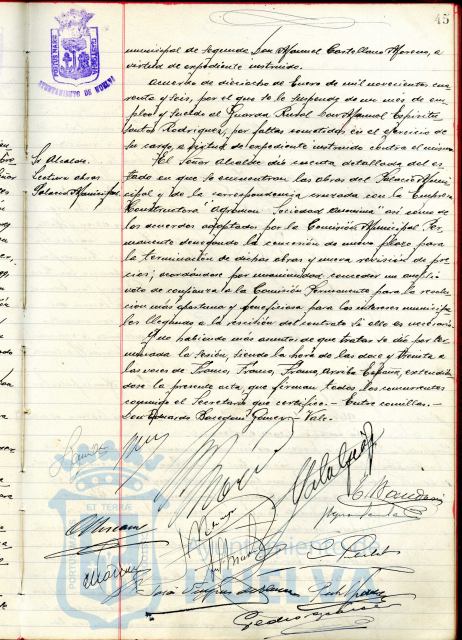 45
PORTUS MARIS
AYUNTAMIENTO DE HUELVA
municipal de segunda Don Manuel Castellano Moreno, a
virtud de expediente instruido.
Acuerdo de dieciocho de Enero de mil novecientos cua-
renta y seis, por el que se le suspende de un mes de em-
pleo y sueldo al Guarda Rural Don Manuel Espíritu
Santo Rodriguez, por faltas cometidas en el ejercicio de
su cargo, a virtud de expediente instruido contra el mismo.
Sr Alcalde.
Lectura obras
Palacio Municipal
El Señor Alcalde dió cuenta detallada del es-
tado en que se encuentran las obras del Palacio Muni-
cipal y de la correspondencia cruzada con la Empresa
Constructora "Agroman Sociedad Anonima" asi como de
los acuerdos adoptados por la Comisión Municipal Per-
manente denegando la concesión de nuevo plazo para
la terminación de dichas obras y nueva revisión de pre-
cios; acordándose por unanimidad conceder un amplio
voto de confianza a la Comisión Permanente para la resolu-
ción más oportuna y beneficiosa para los intereses municipa-
les llegando a la rescisión del contrato si ello es necesario.
Y no habiendo más asuntos de que tratar se dió por ter-
minada la sesión, siendo la hora de las doce y treinta a
las voces de Franco, Franco, Franco, Arriba España, extendién-
dose la presente acta que firman todos los concurrentes
conmigo el Secretario que certifico. — Entre comillas. —
Don Eduardo Gomez — Vale. —
ET TERRAE
PORTUS MARIS
Ayuntamiento de
HUELVA